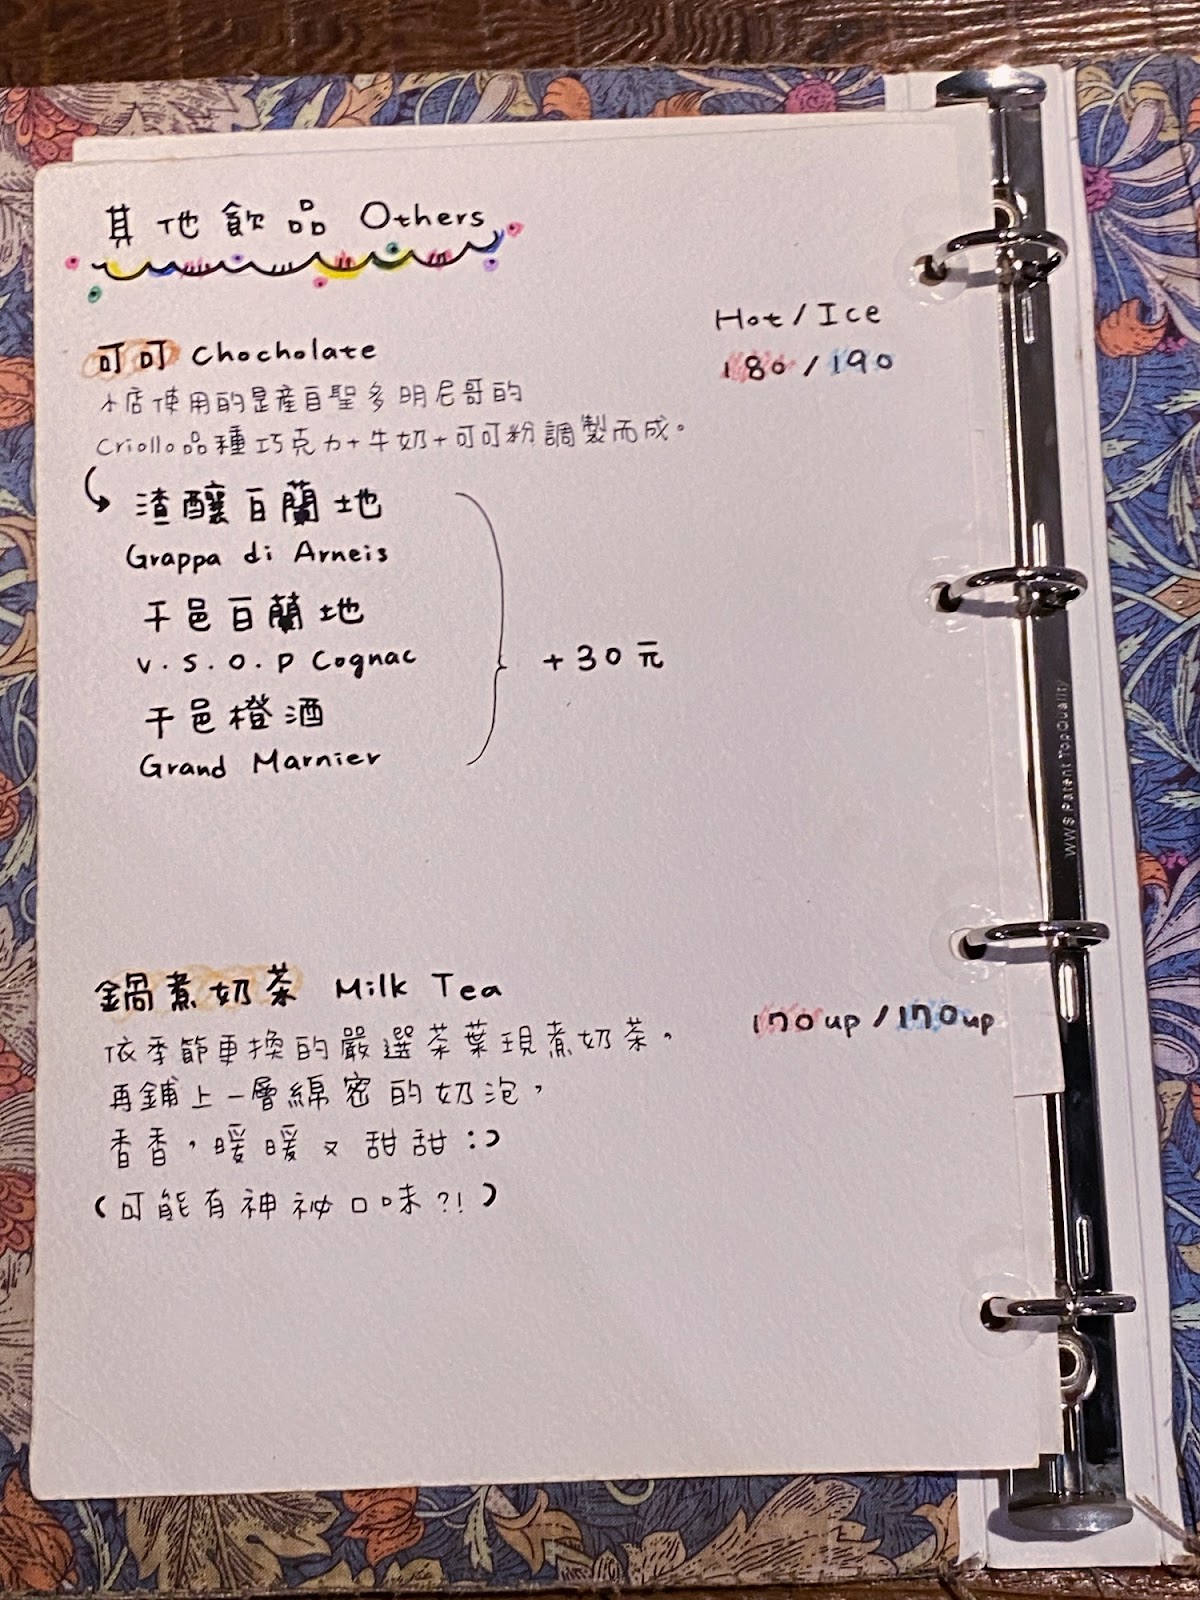 其他飲品 Others
Hot / Ice
可可 Chocholate
180 / 190
本店使用的是產自聖多明尼哥的
Criollo品種巧克力+牛奶+可可粉調製而成。
渣釀白蘭地
Grappa di Arneis
干邑白蘭地
V.S.O.P Cognac
+30元
干邑橙酒
Grand Marnier
鍋煮奶茶 Milk Tea
170up / 170up
依季節更換的嚴選茶葉現煮奶茶,
再鋪上一層綿密的奶泡,
香香,暖暖又甜甜:)
(可能有神祕口味?!)
WWS Patent TopQuality